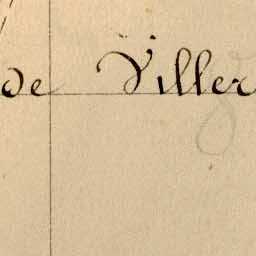 de Viller